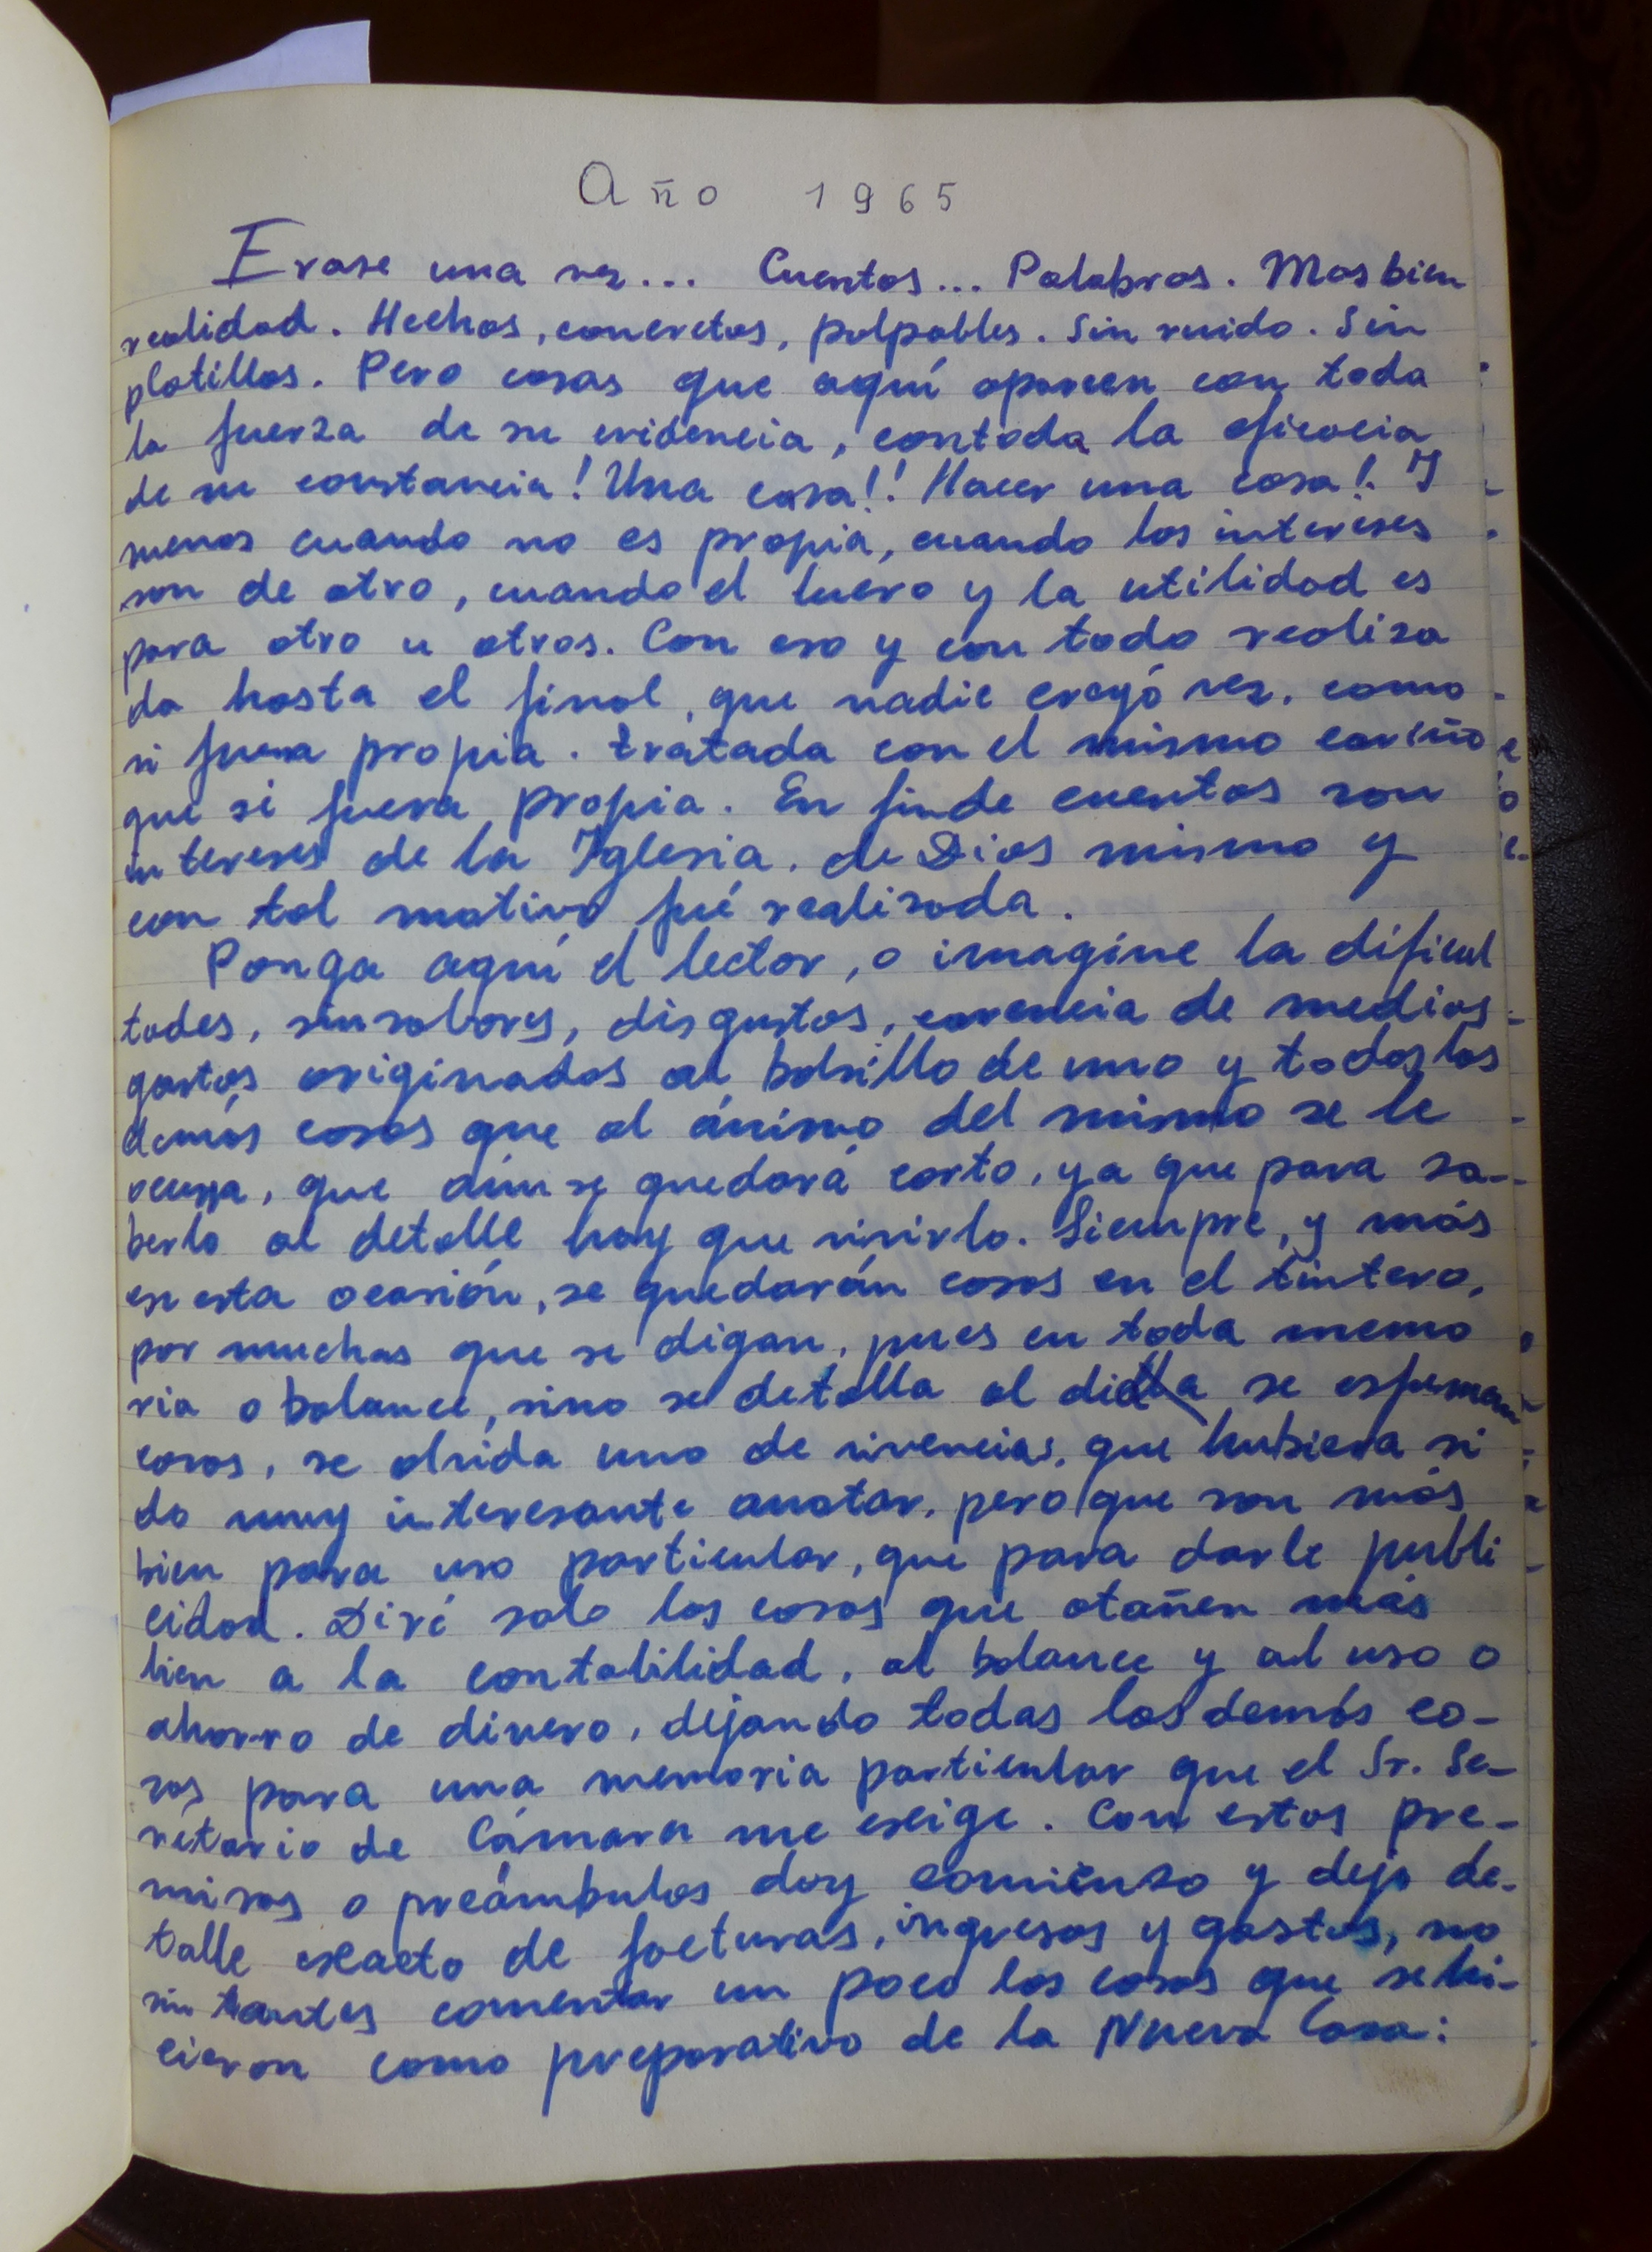 Año 1965
Erase una vez... Cuentos... Palabras. Mas bien
realidad. Hechos, concretos, palpables. Sin ruido. Sin
platillos. Pero cosas que aquí aparecen con toda
la fuerza de su evidencia, contoda la eficacia
de su constancia! Una casa!! Hacer una casa!. Y
menos cuando no es propia, cuando los intereses
son de otro, cuando el lucro y la utilidad es
para otro u otros. Con eso y con todo realiza
da hasta el final, que nadie creyó ver, como
si fuera propia. tratada con el mismo cariño
que si fuera propia. En finde cuentas son
intereses de la Iglesia, de Dios mismo y
con tal motivo fué realizada.
Ponga aquí el lector, o imagine la dificul
tades, sinsabores, disgustos, carencia de medios
gastos originados al bolsillo de uno y todas las
demás cosas que al ánimo del mismo se le
ocurra, que aún se quedará corto, ya que para sa-
berlo al detalle hay que vivirlo. Siempre, y más
en esta ocasión, se quedarán cosas en el tintero,
por muchas que se digan, pues en toda memo
ria o balance, sino se detalla al dia se esfuman
cosas, se olvida uno de vivencias, que hubiera si
do muy interesante anotar, pero que son más
bien para uso particular, que para darle publi
cidad. Diré solo las cosas que atañen más
bien a la contabilidad, al balance y al uso o
ahorro de dinero, dejando todas las demás co-
sas para una memoria particular que el Sr. Se-
retario de Cámara me exige. Con estos pre-
misas o preámbulos doy comienzo y dejo de-
talle exacto de facturas, ingresos y gastos, no
sin antes comentar un poco las cosas que sehi-
cieron como preparativo de la Nueva Casa: